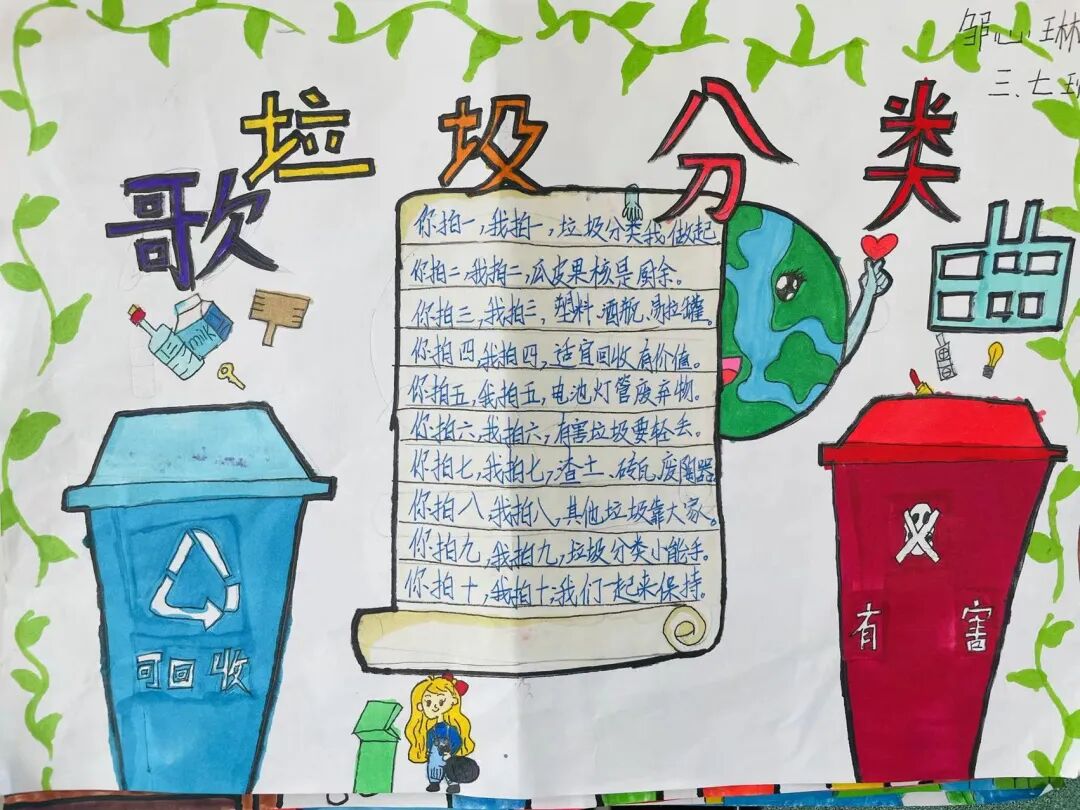 邹心琳
三、七班
垃圾分类
歌
你拍一,我拍一,垃圾分类我做起
你拍二,我拍二,瓜皮果核是厨余。
你拍三,我拍三,塑料、酒瓶、易拉罐。
你拍四,我拍四,适宜回收有价值。
你拍五,我拍五,电池灯管废弃物。
你拍六,我拍六,有害垃圾要轻丢。
你拍七,我拍七,渣土、砖瓦、废陶器
你拍八,我拍八,其他垃圾靠大家。
你拍九,我拍九,垃圾分类小能手。
你拍十,我拍十,我们一起来保持。
可回收
有害